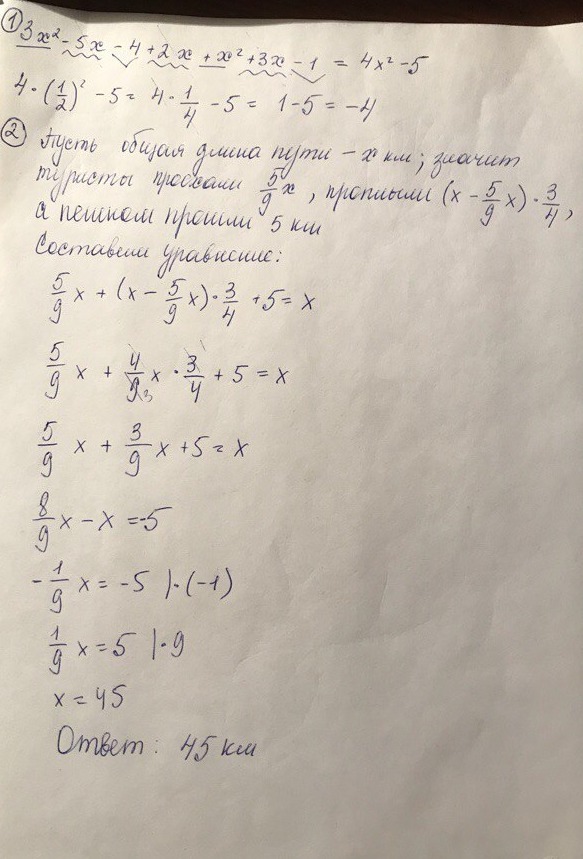 ① 3x² - 5x - 4 + 2x + x² + 3x - 1 = 4x² - 5
4 · (1/2)² - 5 = 4 · 1/4 - 5 = 1 - 5 = -4
② Пусть общая длина пути – x км; значит
туристы проехали 5/9 x, проплыли (x - 5/9 x) · 3/4,
а пешком прошли 5 км
Составим уравнение:
5/9 x + (x - 5/9 x) · 3/4 + 5 = x
5/9 x + 4/9 x · 3/4 + 5 = x
5/9 x + 3/9 x + 5 = x
8/9 x - x = -5
- 1/9 x = -5 | · (-1)
1/9 x = 5 | · 9
x = 45
Ответ: 45 км